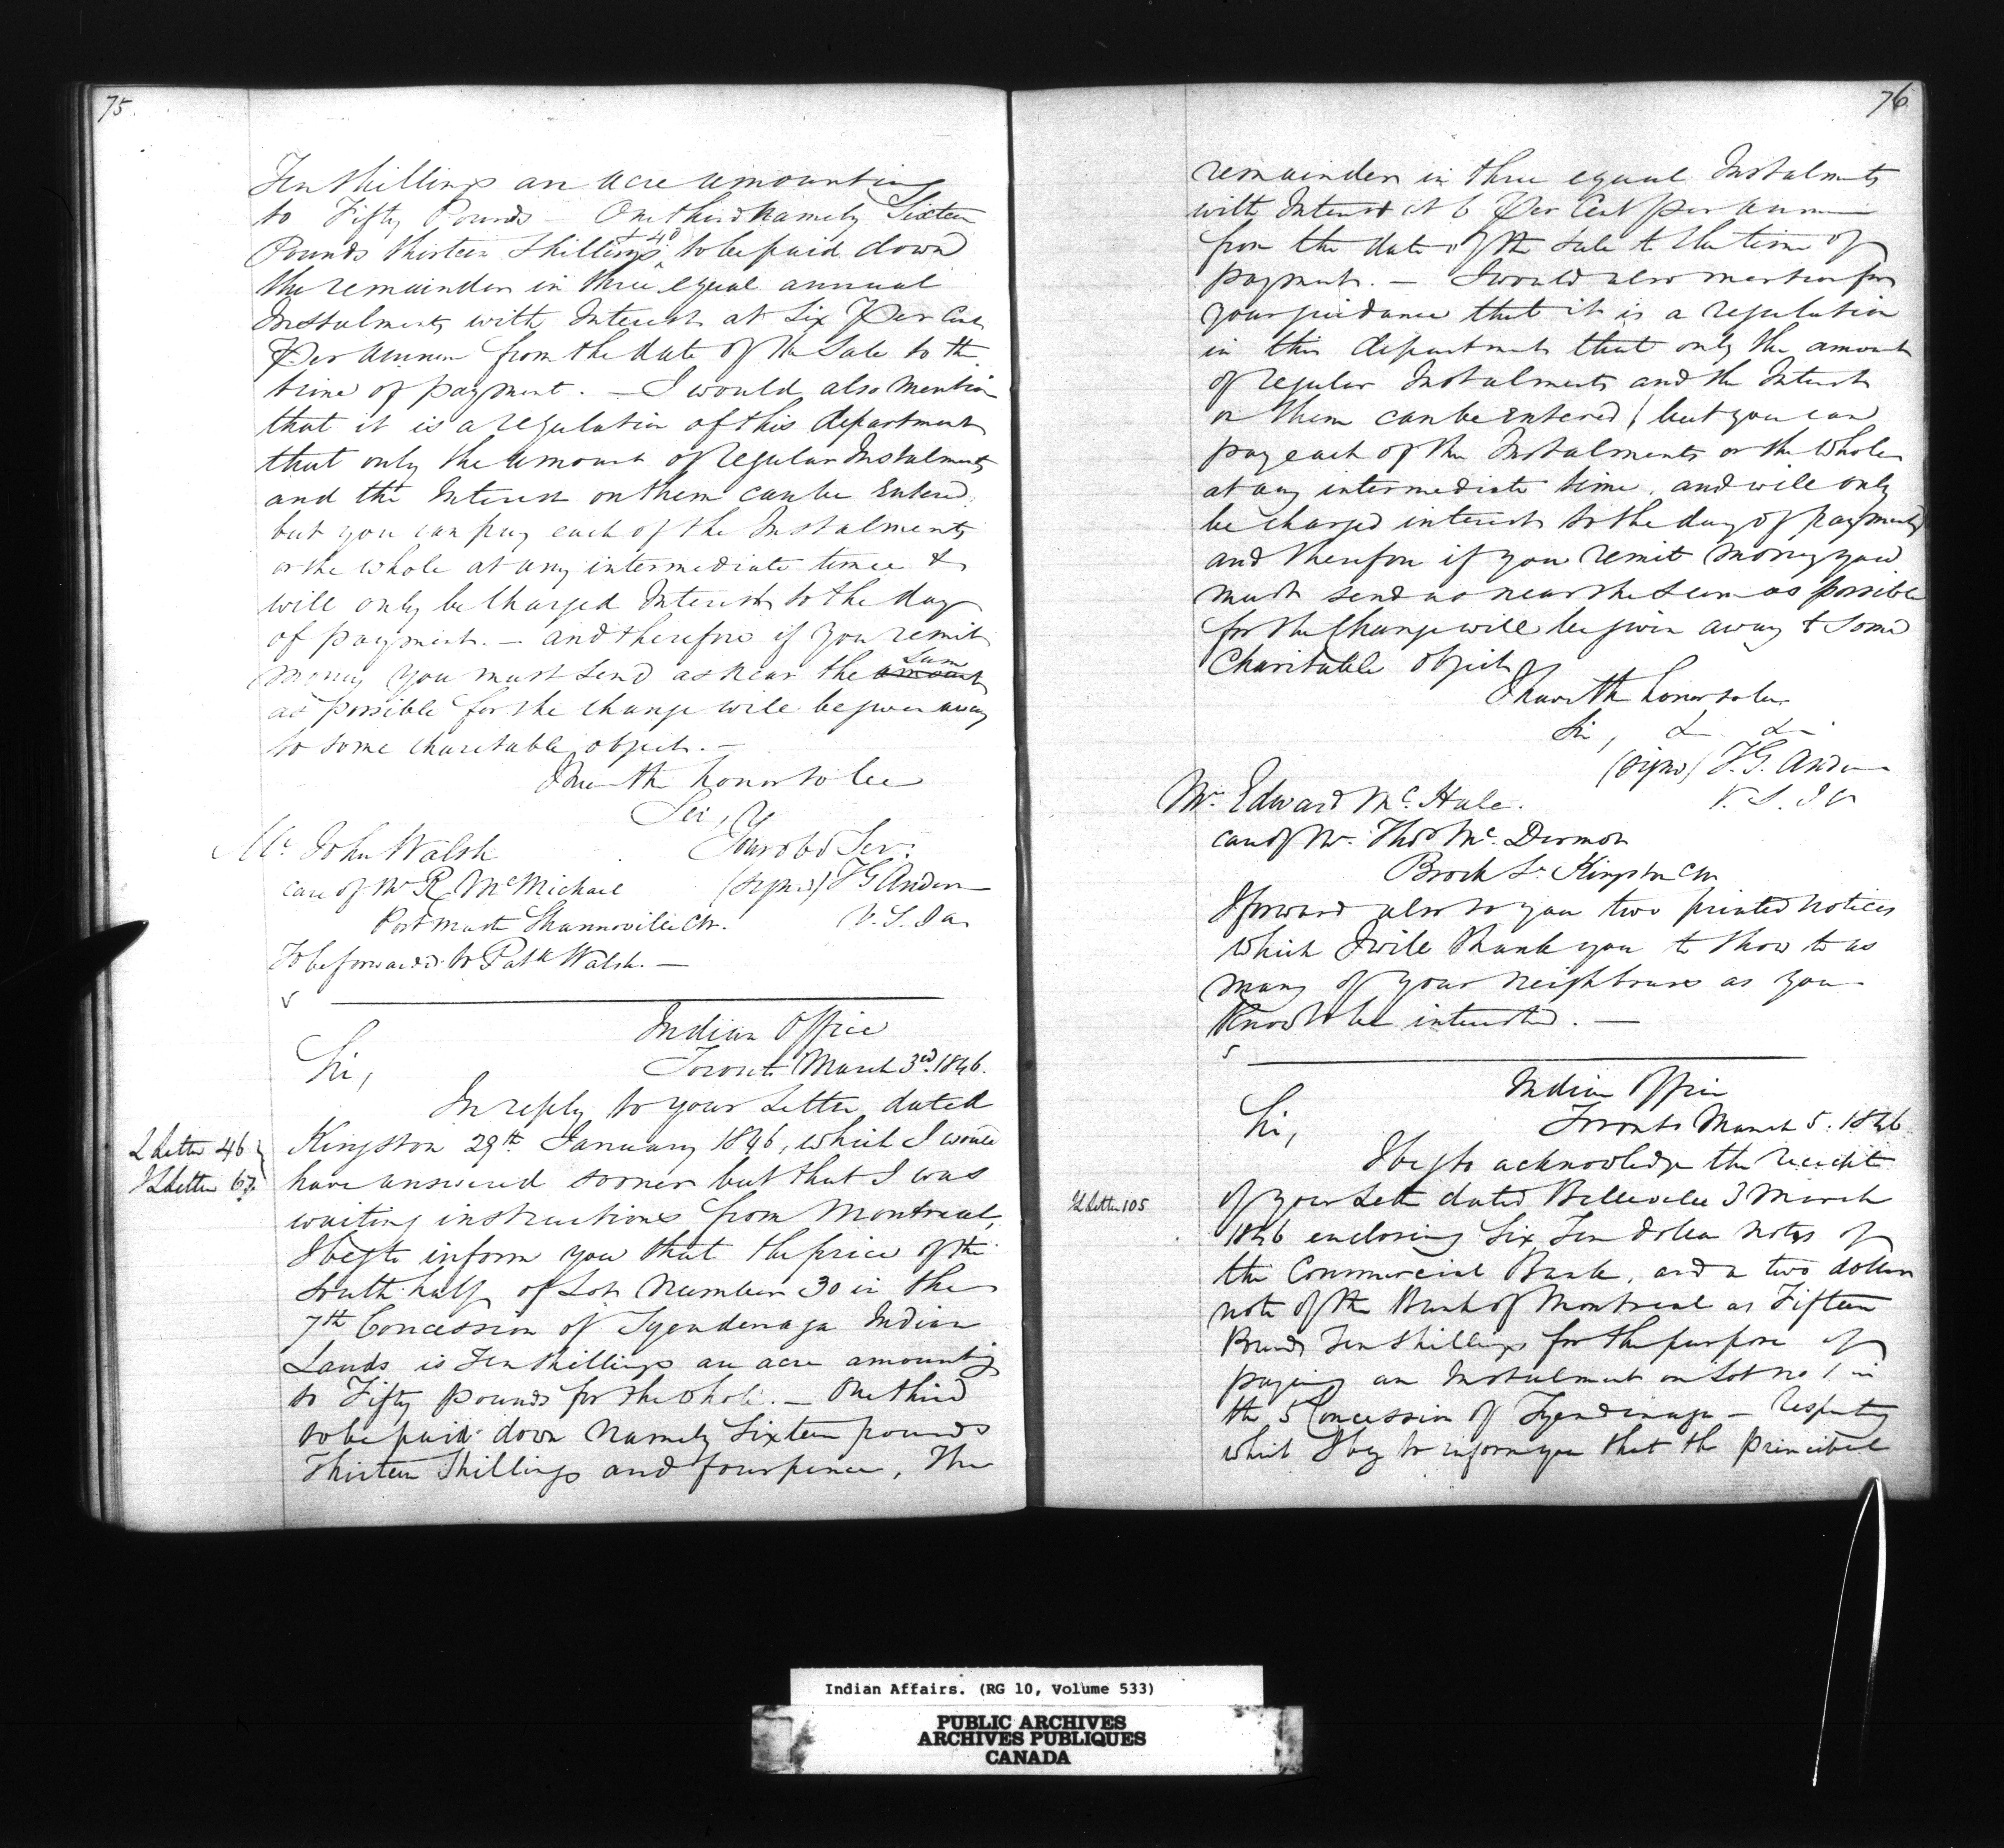 75.
Ten Shillings an Acre amounting
to Fifty Pounds – One third namely Sixteen
Pounds thirteen Shillings & 4d to be paid down
the remainder in three equal annual
Instalments with Interest at Six Per Cent
Per Annum from the date of the Sale to the
time of payment. – I would also mention
that it is a regulation of this department
that only the amount of regular Instalments
and the Interest on them can be Entered,
but you can pay each of the Instalments
or the whole at any intermediate time &
will only be Charged Interest to the day
of payment. – and therefore if you remit
money you must send as near the amount Sum
as possible for the change will be given away
to some charitable object. –
I have the honor to be
Sir,
Your obt Ser:
Mr. John Walsh
care of Mr R McMichael
(signed) T G Anderson
Post Master Shannonville CW.
V. S. I a
To be forwarded to Patk Walsh. –
Indian Office
Toronto March 3rd. 1846.
Sir,
In reply to your Letter dated
Letter 46
Letter 67
Kingston 29th January 1846, which I would
have answered sooner but that I was
waiting instructions from Montreal,
I beg to inform you that the price of the
South half of Lot Number 30 in the
7th Concession of Tyendenaga Indian
Lands is Ten Shillings an acre amounting
to Fifty pounds for the whole. – One third
to be paid down Namely Sixteen pounds
Thirteen Shillings and fourpence, The
76
remainder in three equal Instalments
with Interest at 6 Per Cent per annum
from the date of the Sale to the time of
payment. – I would also mention for
your guidance that it is a regulation
in this department that only the amount
of regular Instalments and the Interest
on them can be entered, but you can
pay each of the Instalments or the Whole
at any intermediate time, and will only
be charged interest to the day of payment
and therefore if you remit money you
must send as near the Sum as possible
for the Change will be given away to some
Charitable object
I have the honor to be
Sir, & &
(signed) T. G. Anderson
V. S. I a
Mr. Edward Mc. Hale.
care of Mr. Thos Mc. Dermot
Brock St Kingston CW
I forward also to you two printed notices
which I will thank you to show to as
many of your neighbours as you
know to be interested. –
Indian Office
Toronto March 5. 1846
Sir,
I beg to acknowledge the receipt
Letter 105
of your Letter dated Belleville 3 March
1846 enclosing Six Ten dollar notes of
the Commercial Bank, and a two dollar
note of the Bank of Montreal as Fifteen
Pounds Ten Shillings for the purpose of
paying an Instalment on Lot no 1 in
the 5 Concession of Tyendinaga – Respecting
which I beg to inform you that the principal
Indian Affairs. (RG 10, Volume 533)
PUBLIC ARCHIVES
ARCHIVES PUBLIQUES
CANADA